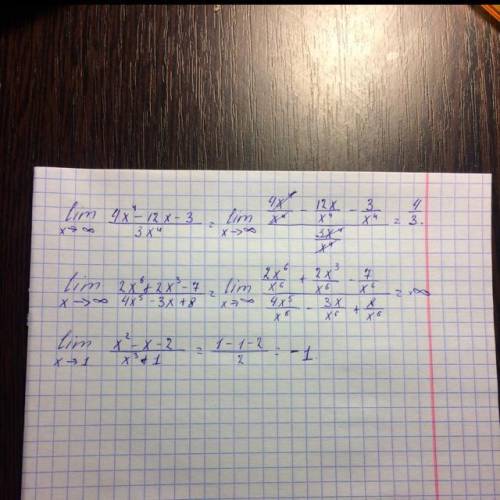 lim x→∞ (4x⁴ - 12x - 3)/(3x⁴) = lim x→∞ (4x⁴/x⁴ - 12x/x⁴ - 3/x⁴)/(3x⁴/x⁴) = 4/3.
lim x→∞ (2x⁶ + 2x³ - 7)/(4x⁵ - 3x + 8) = lim x→∞ (2x⁶/x⁶ + 2x³/x⁶ - 7/x⁶)/(4x⁵/x⁶ - 3x/x⁶ + 8/x⁶) = ∞
lim x→1 (x² - x - 2)/(x³ + 1) = (1 - 1 - 2)/2 = -1.